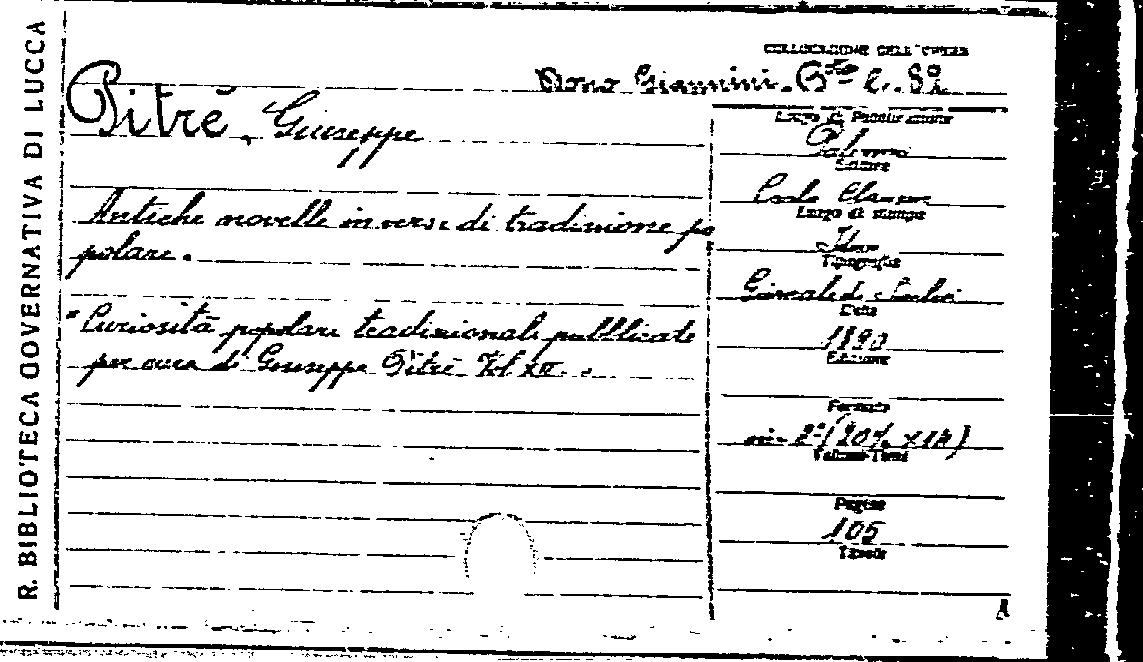 R. BIBLIOTECA GOVERNATIVA DI LUCCA
COLLOCAZIONE DELL'OPERA
Dono Giannini. 82
Pitrè, Giuseppe
Antiche novelle in versi di tradizione po
polare.
"Curiosità popolari tradizionali pubblicate
per cura di Giuseppe Pitrè Vol.
Luogo di Pubblicazione
Palermo
Editore
Carlo Clausen
Luogo di stampa
Idem
Tipografia
Giornale di Sicilia
Data
1890
Edizione
Formato
Volumi-Tomi
Pagine
105
Tavole